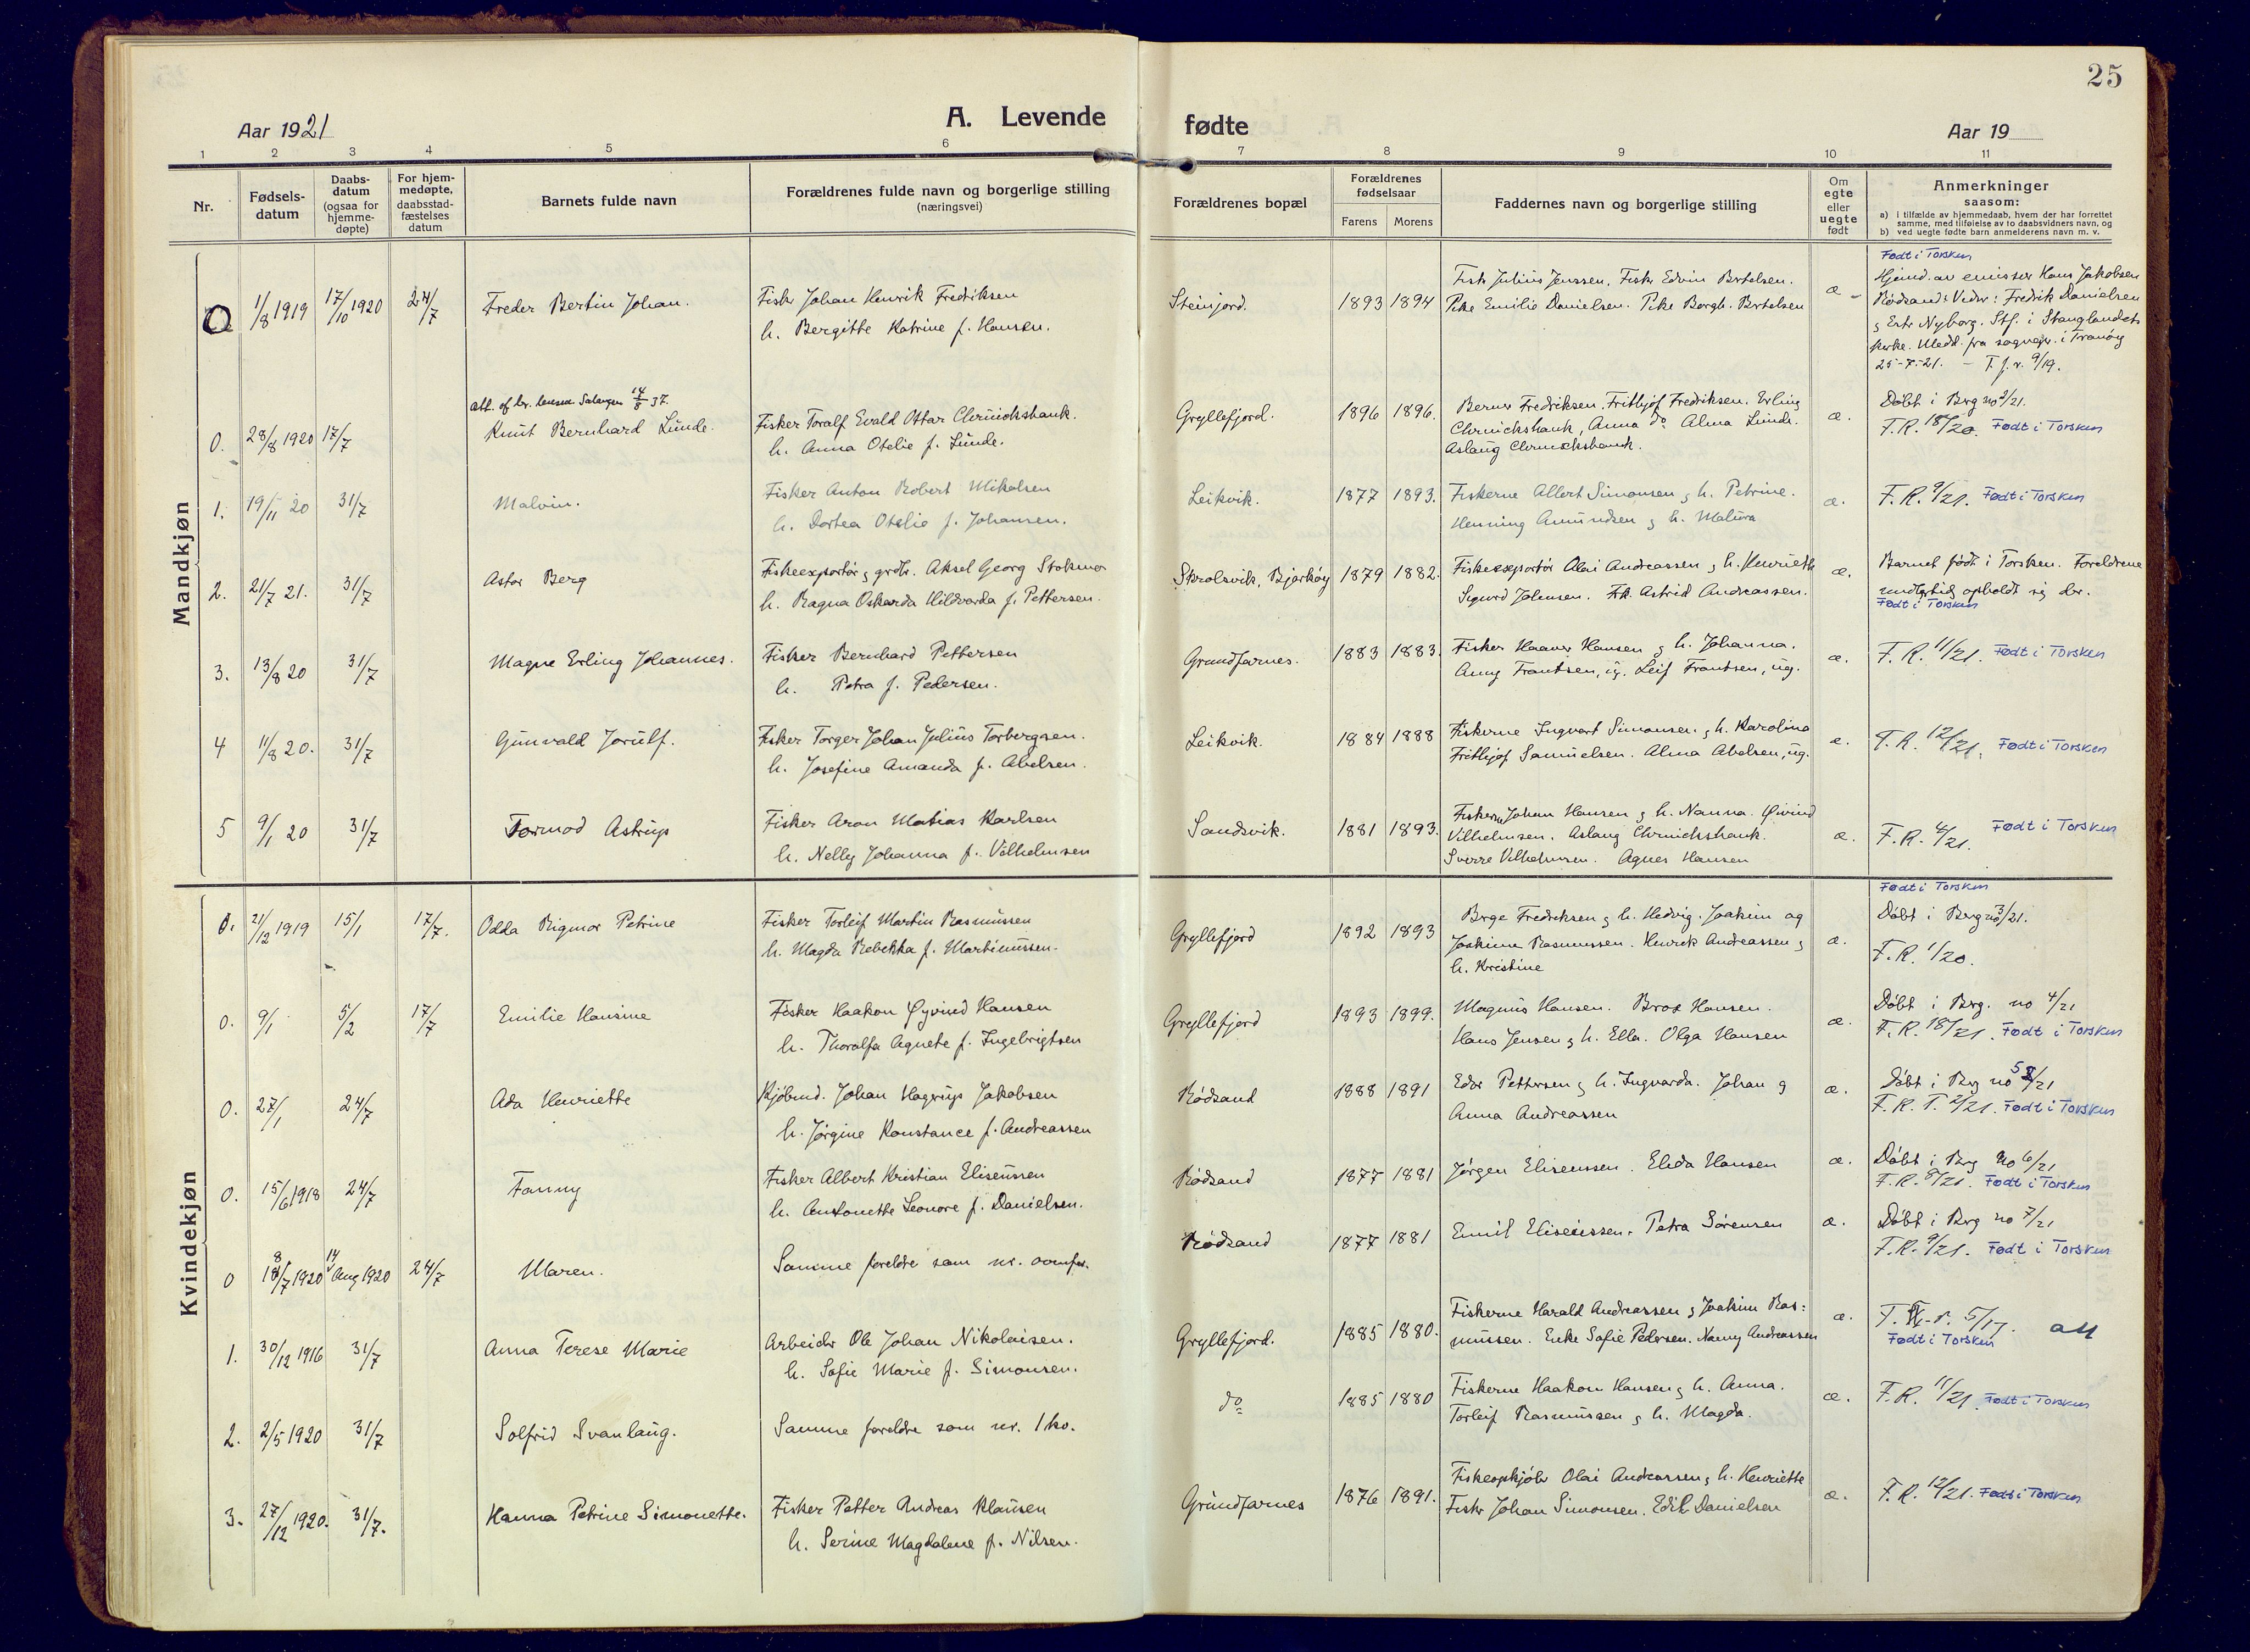 25
Aar 1921
A. Levende
fødte
Aar 19
1 2 3 4 5 6 7 8 9 10 11
Nr.
Fødsels-
datum
Daabs-
datum
(ogsaa for
hjemme-
døpte)
For hjem-
medøpte,
daabsstad-
fæstelses
datum
Barnets fulde navn
Forældrenes fulde navn og borgerlige stilling
(næringsvei)
Forældrenes bopæl
Forældrenes
fødselsaar
Farens Morens
Faddernes navn og borgerlige stilling
Om
egte
eller
uegte
født
Anmerkninger
saasom:
a) i tilfælde av hjemmedaab, hvem der har forrettet
samme, med tilføielse av to daabsvidners navn, og
b) ved uegte fødte barn anmelderens navn m. v.
Mandkjøn
0 1/8 1919 17/10 1920 24/7 Freder Bertin Johan.
Fisk. Johan Henrik Fredriksen
h. Bergitte Katrine f. Hansen.
Steinfjord. 1893 1894
Fisk. Julius Jenssen. Fisk. Edvin Bertelsen.
Pike Emilie Danielsen. Pike Borgh. Bertelsen
æ
Født i Torsken
Hjemd. av emissær Hans Jakobsen
Rödsand: Vidner: Fredrik Danielsen
Nyborg. Stf. i Stanglandets
kirke. Medd. fra sognepr. i Tranöy
25-7-21. - T. f. r. 9/19.
14/8 37.
0. 28/8 1920 17/7 Knut Bernhard Lunde.
Fisker Toralf Evald Ottar Chruickshank.
h. Anna Otelie f. Lunde.
Gryllefjord. 1896 1896.
Berner Fredriksen. Frithjof Fredriksen. Erling
Chruickshank, Anna do Alma Lunde.
Aslaug Chruickshank.
æ.
Döbt i Berg no 2/21.
F.R. 18/20. Født i Torsken
1. 19/11 20 31/7 Malvin.
Fisker Anton Robert Mikalsen
h. Dortea Otelie f. Johansen.
Leikvik. 1877 1893.
Fiskerne Albert Simonsen g h. Petrine.
Henning Amundsen g h. Malura
æ.
F.R. 9/21. Født i Torsken
2. 21/7 21. 31/7 Astor Berg
Fiskeexportör g grdbr. Aksel Georg Stokmo
h. Ragna Oskarda Hildvarda f. Pettersen.
Skrolsvik, Bjarköy 1879 1882.
Fiskeexportör Olai Andreassen g h. Henriette
Sigurd Johnsen. Frk. Astrid Andreassen.
æ.
Barnet födt i Torsken. Foreldrene
midlertidig opholdt sig der.
Født i Torsken
3. 13/8 20 31/7 Magne Erling Johannes.
Fisker Bernhard Pettersen
h. Petra f. Pedersen.
Grundfarnes. 1883 1883.
Fisker Haaver Hansen g h. Johanna.
Anny Frantsen, ug. Leif Frantsen, ug.
æ.
F.R. 11/21. Født i Torsken
4 11/8 20. 31/7 Gunvald Jorulf.
Fisker Torger Johan Julius Torbergsen.
h. Josefine Amanda f. Abelsen.
Leikvik. 1884 1888
Fiskerne Ingvart Simonsen. g h. Karolina
Frithjof Samuelsen. Alma Abelsen, ug.
æ.
F.R. 12/21. Født i Torsken
5 9/1 20 31/7 Tormod Astrup
Fisker Aron Matias Karlsen
h. Nelly Johanna f. Vilhelmsen
Sandsvik. 1881 1893.
Fiskerne Johan Hansen g h. Nanna. Øivind
Vilhelmsen. Aslaug Chruickshank.
Sverre Vilhelmsen. Agnes Hansen
æ.
F.R. 4/21. Født i Torsken
Kvindekjøn
0. 21/12 1919 15/1 17/7. Odda Rigmor Petrine
Fisker Torleif Martin Rasmussen
h. Magda Rebekka f. Martinussen.
Gryllefjord 1892 1893
Børge Fredriksen g h. Hedvig. Joakim og
Joakime Rasmussen. Henrik Andreassen g
h. Kristine
æ.
Født i Torsken
Döbt i Berg no 3/21.
F.R. 1/20.
0. 9/1 5/2 17/7 Emilie Hansine
Fisker Haakon Øyvind Hansen
h. Thoralfa Agnete f. Ingebrigtsen
Gryllefjord 1893 1899.
Magnus Hansen. Hansen.
Hans Jensen g h. Ella. Olga Hansen
æ.
Döbt i Brg. no 4/21
F.R. 18/21. Født i Torsken
0. 27/1 24/7 Ada Henriette
Kjöbmd. Johan Hagerup Jakobsen
h. Jörgine Konstance f. Andreassen
Rödsand 1888 1891
Edor Pettersen g h. Ingvarda. Johan g
Anna Andreassen
æ.
Döbt i Brg no 5/21
F.R.T. 2/21. Født i Torsken
0. 15/6 1918 24/7 Fanny
Fisker Albert Kristian Eliseussen
h. Antonette Leonore f. Danielsen.
Rödsand 1877 1881
Jörgen Eliseussen. Elida Hansen
æ.
Döbt i Brg no 6/21
F.R. 8/21. Født i Torsken
0 18/7 1920 14 Aug 1920 24/7 Maren.
Samme foreldre som nr. ovenfor.
Rödsand 1877 1881
Emil Eliseussen. Petra Sörensen
æ.
Döbt i Brg no 7/21
F.R. 9/21. Født i Torsken
1. 30/12 1916 31/7 Anna Terese Marie
Arbeider Ole Johan Nikolaisen.
h. Sofie Marie f. Simonsen.
Gryllefjord. 1885 1880.
Fiskerne Harald Andreassen g Joakim Ras:
mussen. Enke Sofie Pedersen. Nanny Andreassen
æ.
5/17. att
Født i Torsken
2. 2/5 1920 31/7 Solfrid Svanlaug.
Samme foreldre som nr. 1 ko.
do 1885 1880
Fiskerne Haakon Hansen g h. Anna.
Torleif Rasmussen g h. Magda.
æ.
F.R. 11/21 Født i Torsken
3. 27/12 1920. 31/7. Hanna Petrine Simonette.
Fisker Petter Andreas Klausen
h. Serine Magdalene f. Nilsen.
Grundfarnes 1876 1891.
Fiskeopkjöber Olai Andreassen g h. Henriette
Fisker Johan Simonsen. Edil Danielsen
æ.
F.R. 12/21. Født i Torsken